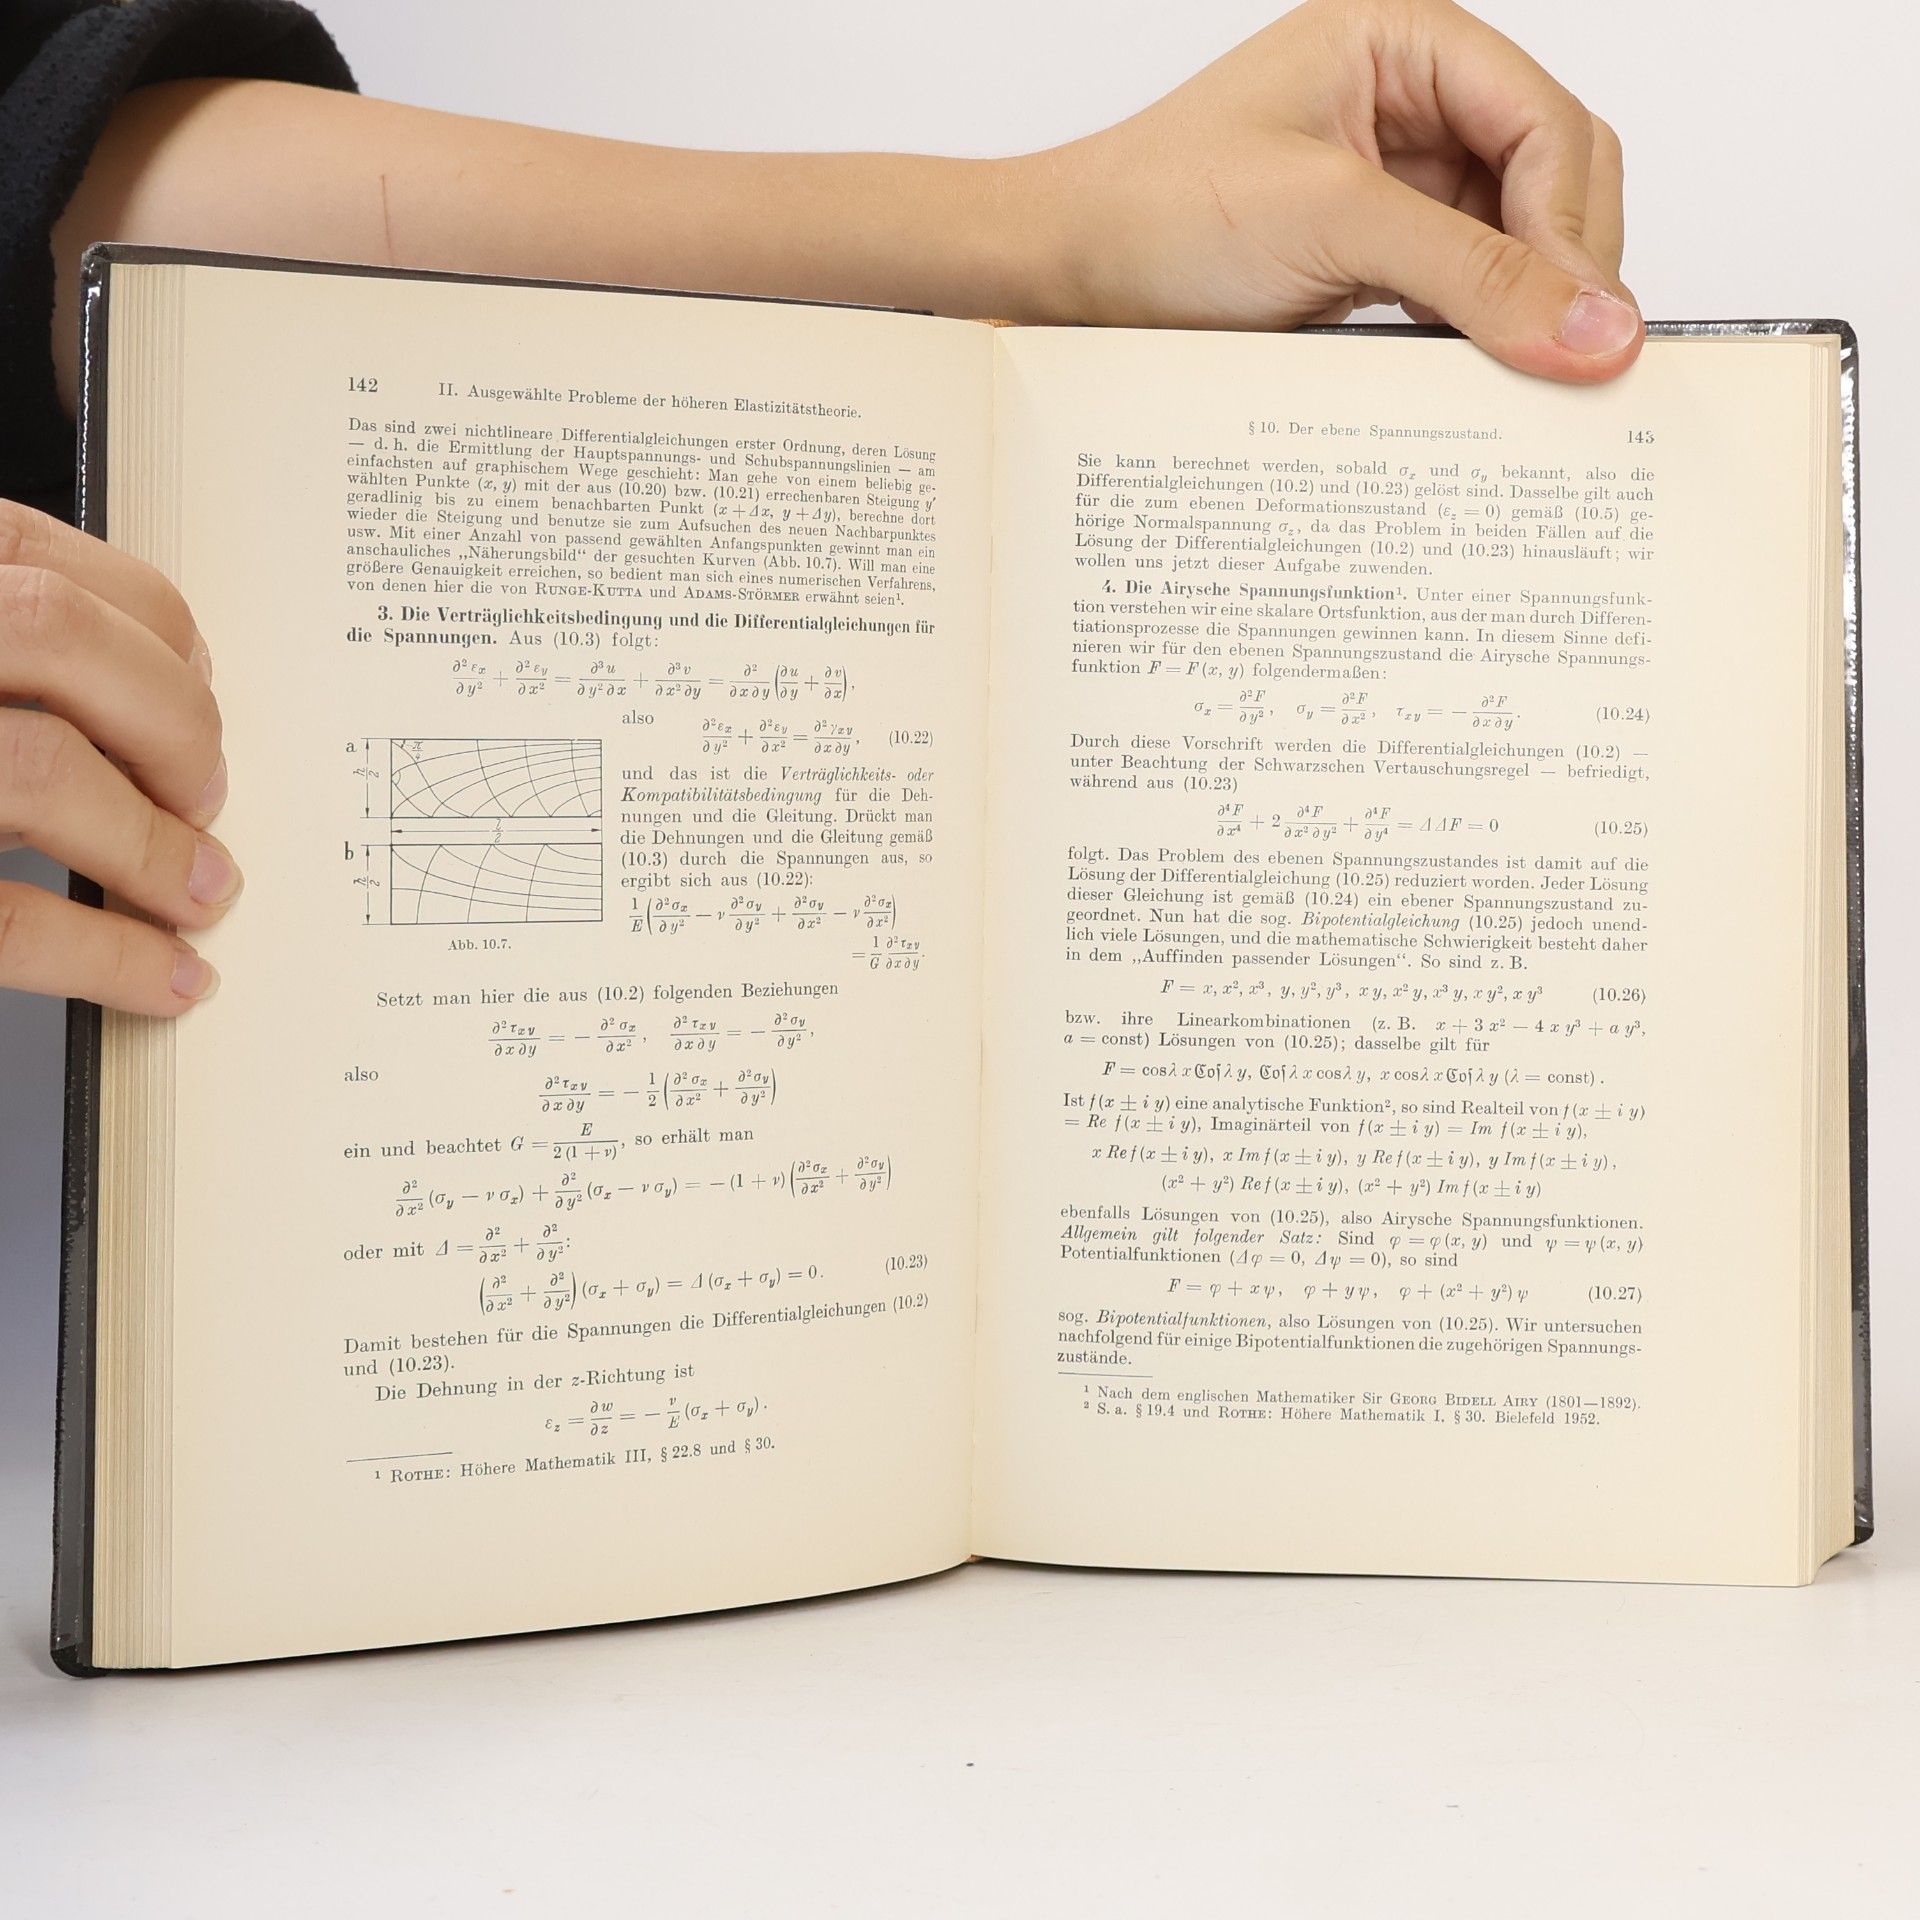 142 II. Ausgewählte Probleme der höheren Elastizitätstheorie.
Das sind zwei nichtlineare Differentialgleichungen erster Ordnung, deren Lösung
— d. h. die Ermittlung der Hauptspannungs- und Schubspannungslinien — am
einfachsten auf graphischem Wege geschieht: Man gehe von einem beliebig ge-
wählten Punkte (x, y) mit der aus (10.20) bzw. (10.21) errechenbaren Steigung y′
geradlinig bis zu einem benachbarten Punkt (x + Δx, y + Δy), berechne dort
wieder die Steigung und benutze sie zum Aufsuchen des neuen Nachbarpunktes
usw. Mit einer Anzahl von passend gewählten Anfangspunkten gewinnt man ein
anschauliches „Näherungsbild“ der gesuchten Kurven (Abb. 10.7). Will man eine
größere Genauigkeit erreichen, so bedient man sich eines numerischen Verfahrens,
von denen hier die von RUNGE-KUTTA und ADAMS-STÖRMER erwähnt seien¹.
3. Die Verträglichkeitsbedingung und die Differentialgleichungen für
die Spannungen. Aus (10.3) folgt:
∂²εx/∂y² + ∂²εy/∂x² = ∂³u/∂y²∂x + ∂³v/∂x²∂y = ∂²/∂x∂y (∂u/∂y + ∂v/∂x),
also
∂²εx/∂y² + ∂²εy/∂x² = ∂²γxy/∂x∂y, (10.22)
a
π/4
h/2
l/2
b
h/2
Abb. 10.7.
und das ist die Verträglichkeits- oder
Kompatibilitätsbedingung für die Deh-
nungen und die Gleitung. Drückt man
die Dehnungen und die Gleitung gemäß
(10.3) durch die Spannungen aus, so
ergibt sich aus (10.22):
1/E (∂²σx/∂y² − ν ∂²σy/∂y² + ∂²σy/∂x² − ν ∂²σx/∂x²)
= 1/G ∂²τxy/∂x∂y.
Setzt man hier die aus (10.2) folgenden Beziehungen
∂²τxy/∂x∂y = − ∂²σx/∂x², ∂²τxy/∂x∂y = − ∂²σy/∂y²,
also
∂²τxy/∂x∂y = − 1/2 (∂²σx/∂x² + ∂²σy/∂y²)
ein und beachtet G = E/2(1 + ν), so erhält man
∂²/∂x² (σy − ν σx) + ∂²/∂y² (σx − ν σy) = − (1 + ν) (∂²σx/∂x² + ∂²σy/∂y²)
oder mit Δ = ∂²/∂x² + ∂²/∂y²:
(∂²/∂x² + ∂²/∂y²) (σx + σy) = Δ (σx + σy) = 0. (10.23)
Damit bestehen für die Spannungen die Differentialgleichungen (10.2)
und (10.23).
Die Dehnung in der z-Richtung ist
εz = ∂w/∂z = − ν/E (σx + σy).
¹ ROTHE: Höhere Mathematik III, § 22.8 und § 30.
§ 10. Der ebene Spannungszustand. 143
Sie kann berechnet werden, sobald σx und σy bekannt, also die
Differentialgleichungen (10.2) und (10.23) gelöst sind. Dasselbe gilt auch
für die zum ebenen Deformationszustand (εz = 0) gemäß (10.5) ge-
hörige Normalspannung σz, da das Problem in beiden Fällen auf die
Lösung der Differentialgleichungen (10.2) und (10.23) hinausläuft; wir
wollen uns jetzt dieser Aufgabe zuwenden.
4. Die Airysche Spannungsfunktion¹. Unter einer Spannungsfunk-
tion verstehen wir eine skalare Ortsfunktion, aus der man durch Differen-
tiationsprozesse die Spannungen gewinnen kann. In diesem Sinne defi-
nieren wir für den ebenen Spannungszustand die Airysche Spannungs-
funktion F = F(x, y) folgendermaßen:
σx = ∂²F/∂y², σy = ∂²F/∂x², τxy = − ∂²F/∂x∂y. (10.24)
Durch diese Vorschrift werden die Differentialgleichungen (10.2) —
unter Beachtung der Schwarzschen Vertauschungsregel — befriedigt,
während aus (10.23)
∂⁴F/∂x⁴ + 2 ∂⁴F/∂x²∂y² + ∂⁴F/∂y⁴ = ΔΔF = 0 (10.25)
folgt. Das Problem des ebenen Spannungszustandes ist damit auf die
Lösung der Differentialgleichung (10.25) reduziert worden. Jeder Lösung
dieser Gleichung ist gemäß (10.24) ein ebener Spannungszustand zu-
geordnet. Nun hat die sog. Bipotentialgleichung (10.25) jedoch unend-
lich viele Lösungen, und die mathematische Schwierigkeit besteht daher
in dem „Auffinden passender Lösungen“. So sind z. B.
F = x, x², x³, y, y², y³, x y, x² y, x³ y, x y², x y³ (10.26)
bzw. ihre Linearkombinationen (z. B. x + 3 x² − 4 x y³ + a y³,
a = const) Lösungen von (10.25); dasselbe gilt für
F = cos λ x 𝕮𝖔𝖋 λ y, 𝕮𝖔𝖋 λ x cos λ y, x cos λ x 𝕮𝖔𝖋 λ y (λ = const).
Ist f(x ± i y) eine analytische Funktion², so sind Realteil von f(x ± i y)
= Re f(x ± i y), Imaginärteil von f(x ± i y) = Im f(x ± i y),
x Re f(x ± i y), x Im f(x ± i y), y Re f(x ± i y), y Im f(x ± i y),
(x² + y²) Re f(x ± i y), (x² + y²) Im f(x ± i y)
ebenfalls Lösungen von (10.25), also Airysche Spannungsfunktionen.
Allgemein gilt folgender Satz: Sind φ = φ(x, y) und ψ = ψ(x, y)
Potentialfunktionen (Δφ = 0, Δψ = 0), so sind
F = φ + xψ, φ + yψ, φ + (x² + y²) ψ (10.27)
sog. Bipotentialfunktionen, also Lösungen von (10.25). Wir untersuchen
nachfolgend für einige Bipotentialfunktionen die zugehörigen Spannungs-
zustände.
¹ Nach dem englischen Mathematiker Sir GEORG BIDELL AIRY (1801—1892).
² S. a. § 19.4 und ROTHE: Höhere Mathematik I, § 30. Bielefeld 1952.